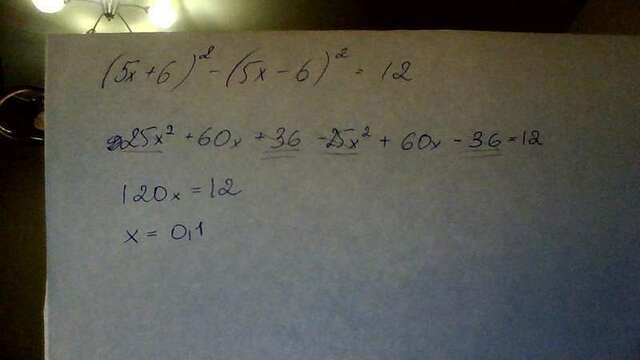 (5x+6)² - (5x-6)² = 12
25x² + 60x + 36 - 25x² + 60x - 36 = 12
120x = 12
x = 0,1